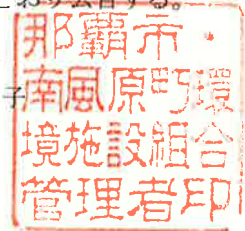 おり公告する。
子
那覇市・
南風原町環
境施設組合
管理者印